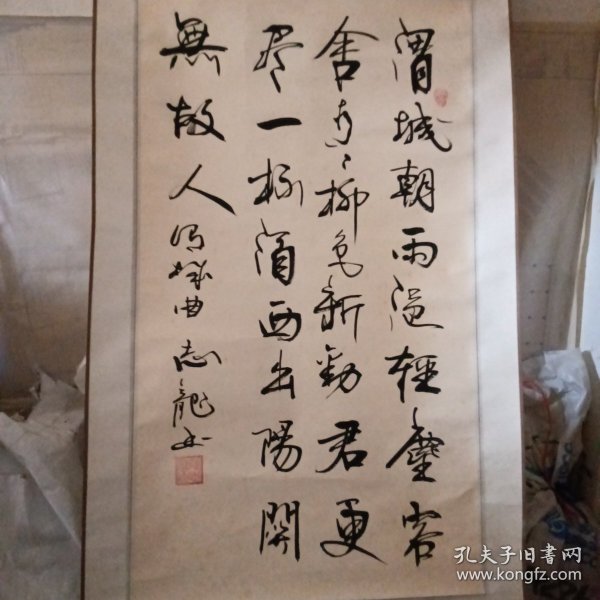 渭城朝雨浥轻塵客
舍青々柳色新勸君更
尽一杯酒西出陽関
無故人 渭城曲 志龍书
孔夫子旧书网
www.kongfz.com